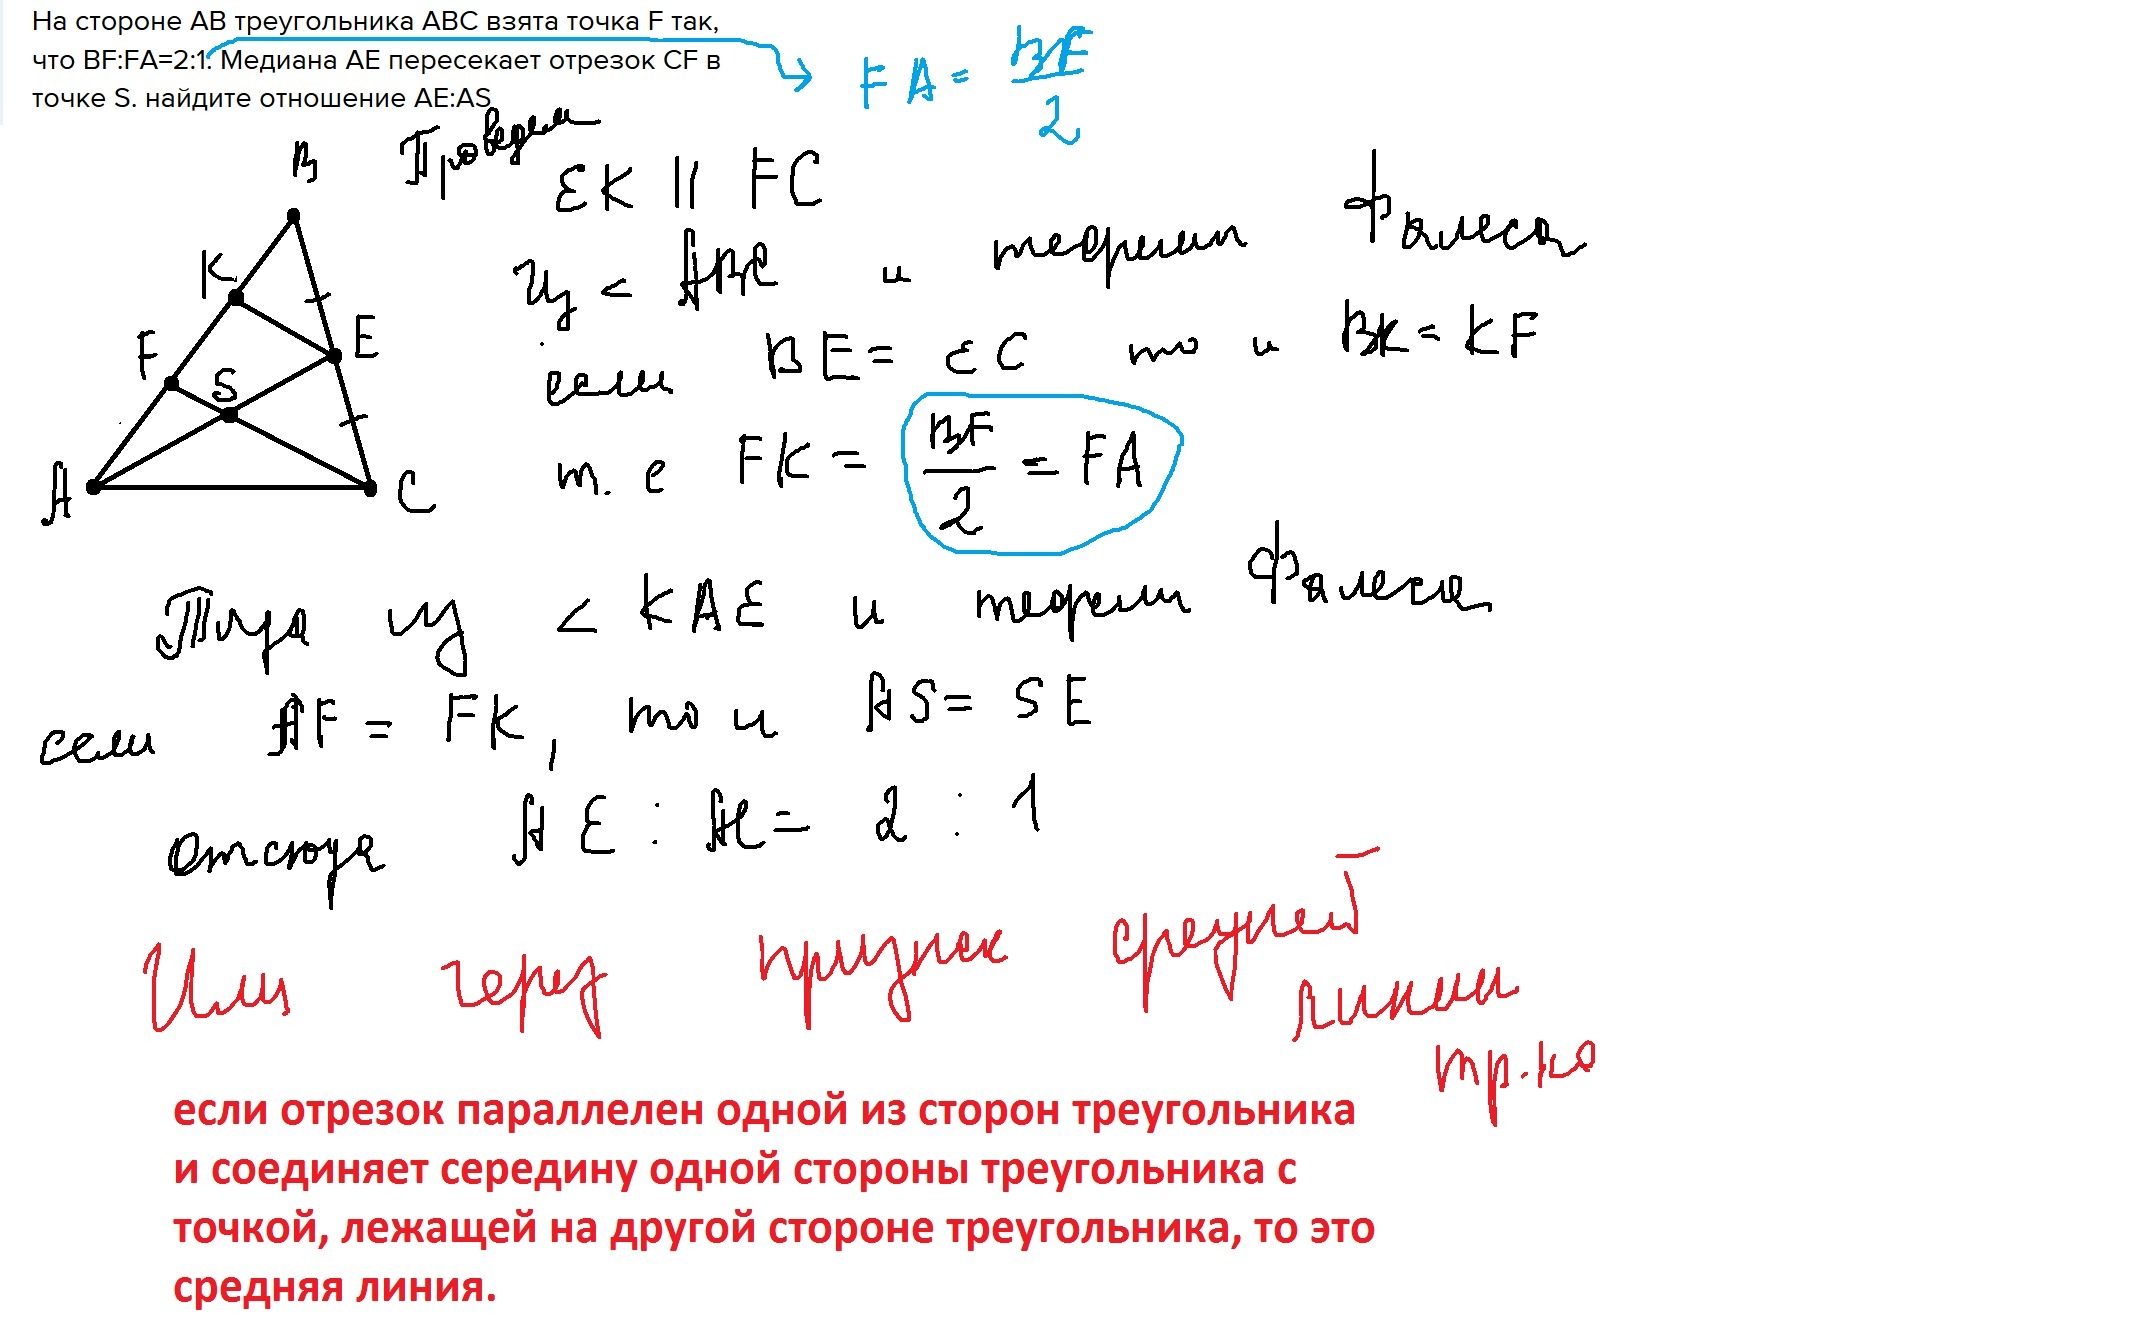 На стороне АВ треугольника ABC взята точка F так,
что BF:FA=2:1. Медиана AE пересекает отрезок CF в
точке S. найдите отношение AE:AS
FA = BF/2
B
K
F
S
E
A
C
Проведем
EK || FC
Из < ABC и теоремы Фалеса
если BE = EC то и BK = KF
т. е FK = BF/2 = FA
Тогда из < KAE и теоремы Фалеса
если AF = FK, то и AS = SE
отсюда AE : AS = 2 : 1
Или через признак средней
линии
тр.ка
если отрезок параллелен одной из сторон треугольника
и соединяет середину одной стороны треугольника с
точкой, лежащей на другой стороне треугольника, то это
средняя линия.